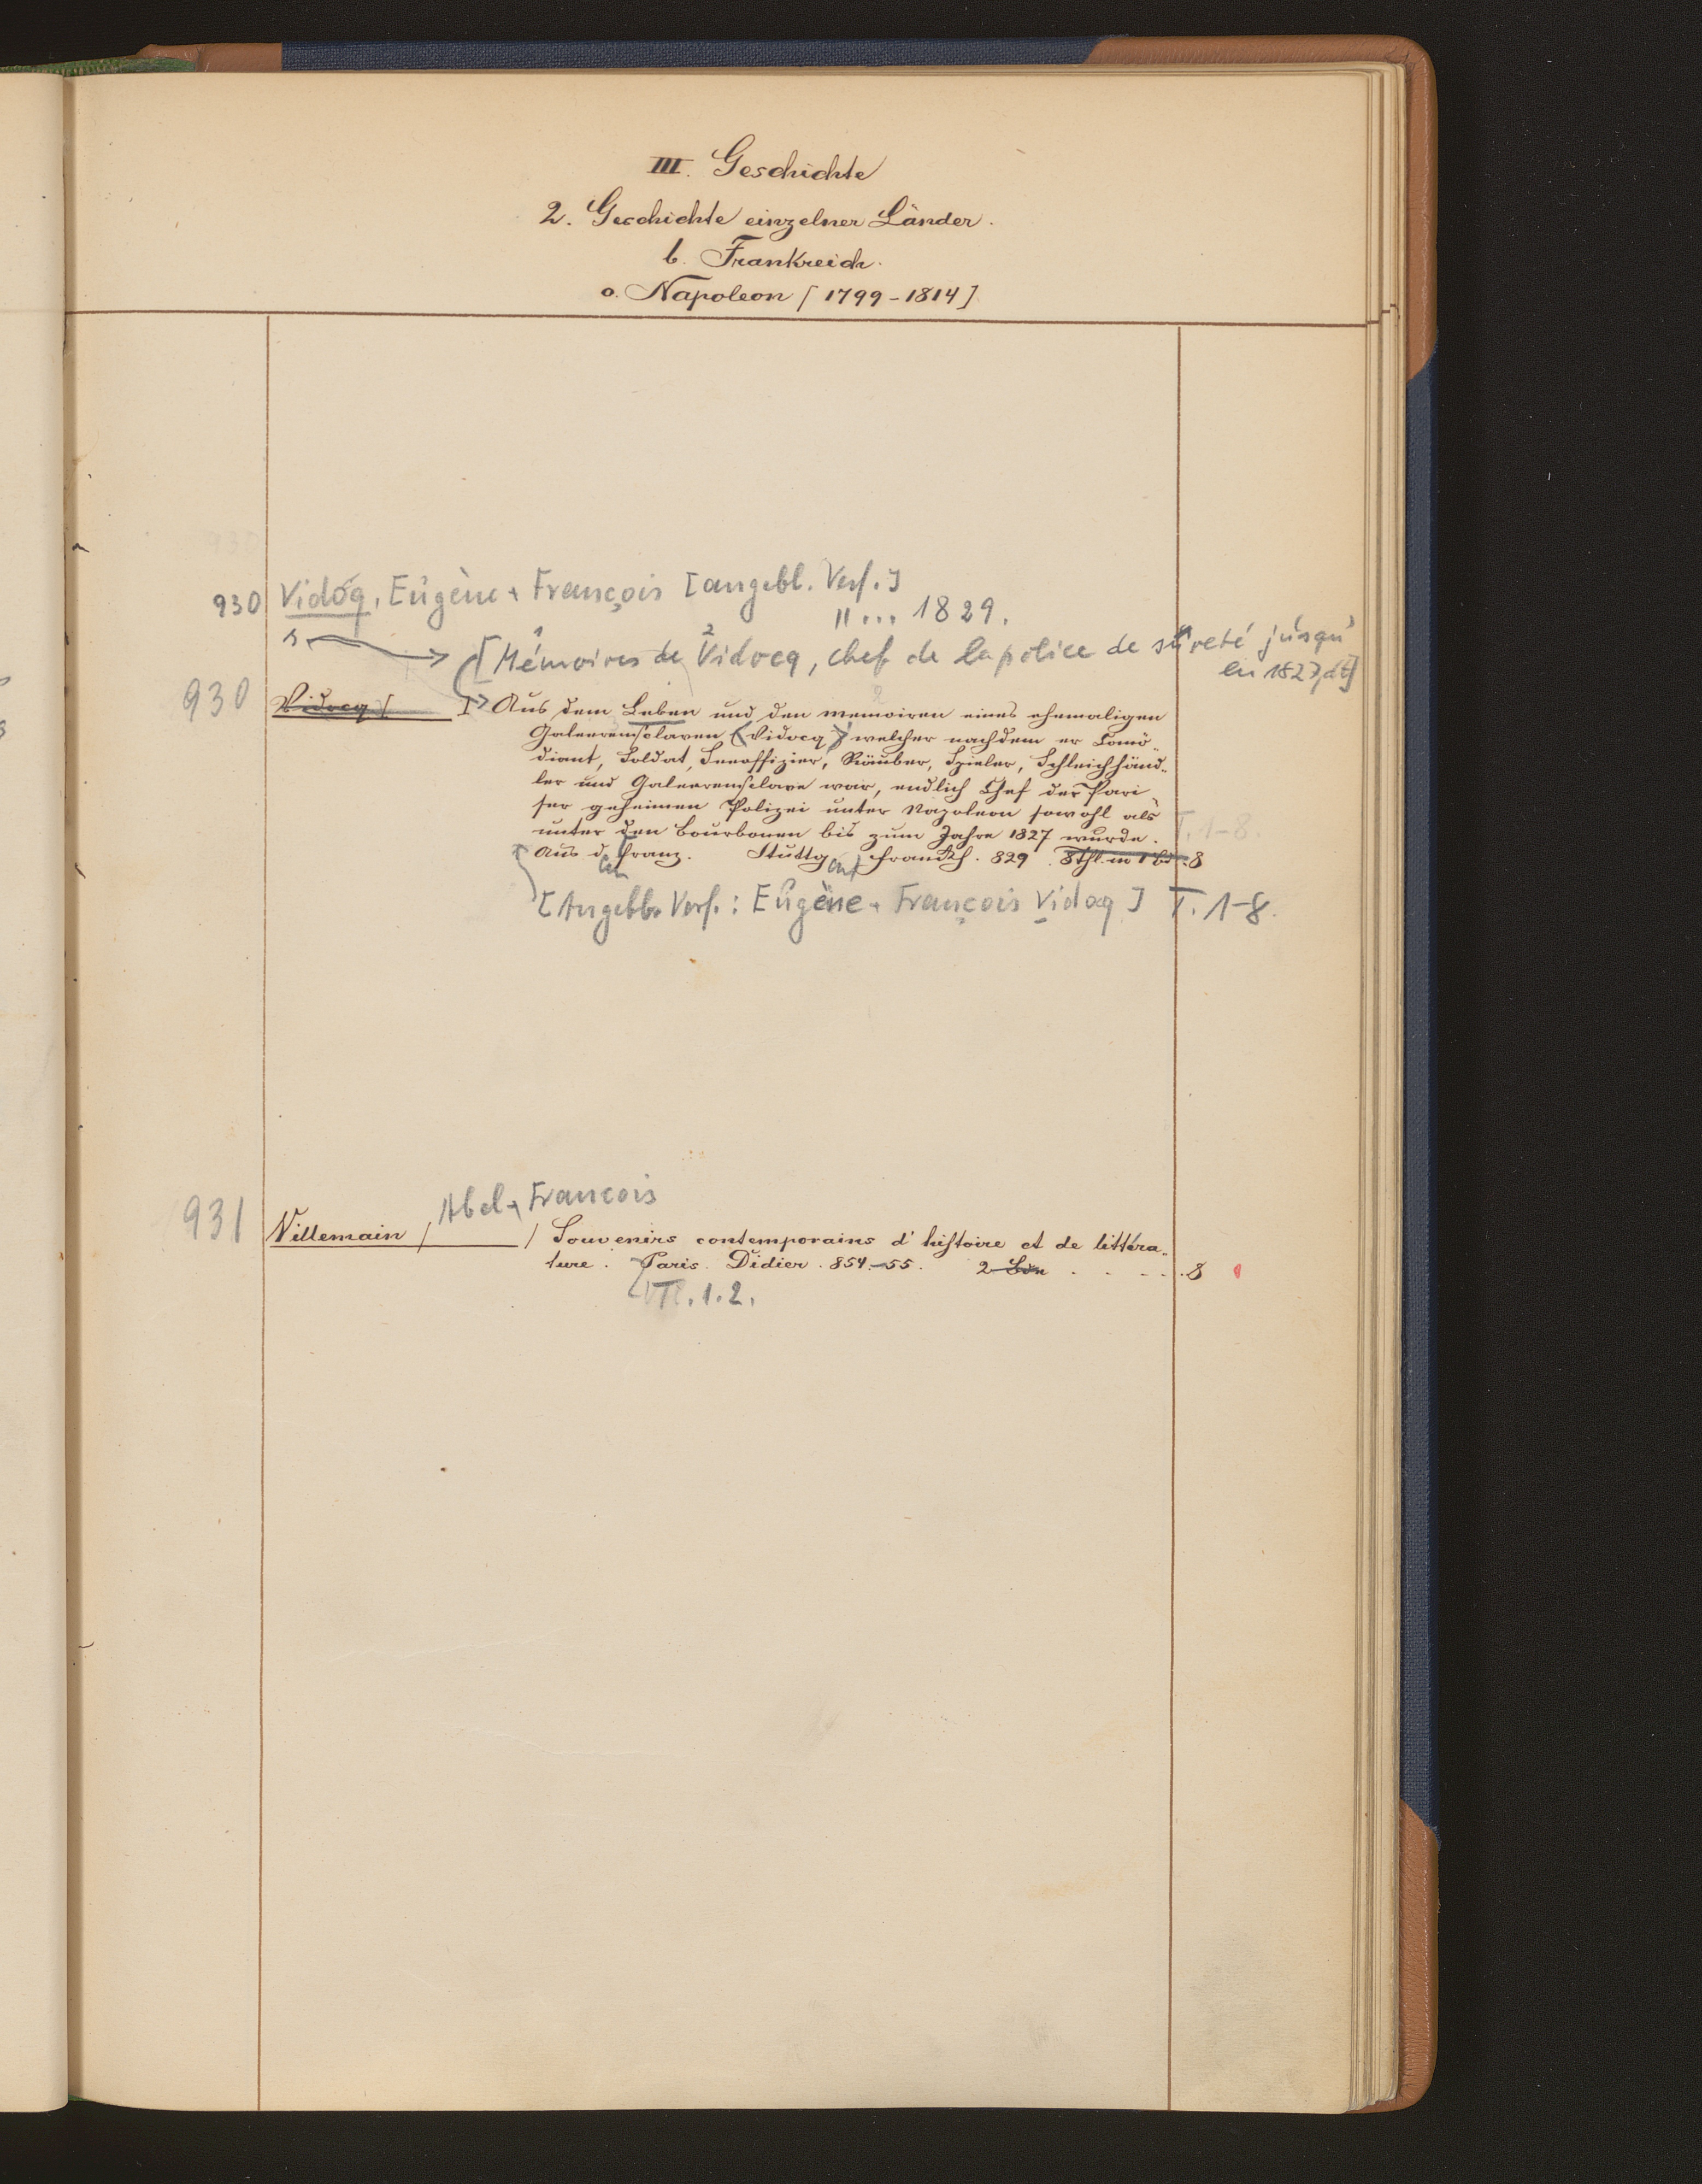 III. Geschichte
2. Geschichte einzelner Länder.
b. Frankreich.
o. Napoleon [1799-1814]
930 Vidocq, Eugène + François [angebl. Verf.]
"... 1829.
[Mémoires de Vidocq, chef de la police de sûreté jusqu'
en 1827, dt]
930 Vidocq / Aus dem Leben und den Memoiren eines ehemaligen
Galeerensclaven (Vidocq) welcher nachdem er Comö-
diant, Soldat, Seeoffizier, Räuber, Spieler, Schleichhänd-
ler und Galeerensclave war, endlich Chef der Pari-
ser geheimen Polizei unter Napoleon sowohl als
unter den Bourbonen bis zum Jahre 1827 wurde. T. 1-8.
Aus d. Franz. Stuttg. Franckh. 829. 8 Thl. in 1 Bd. 8
[Angebl. Verf.: Eugène + François Vidocq] T. 1-8.
Abel + Francois
931 Villemain / / Souvenirs contemporains d'histoire et de littéra-
ture. Paris. Didier. 854-55. 2 Bde . . . . 8
T. 1.2.